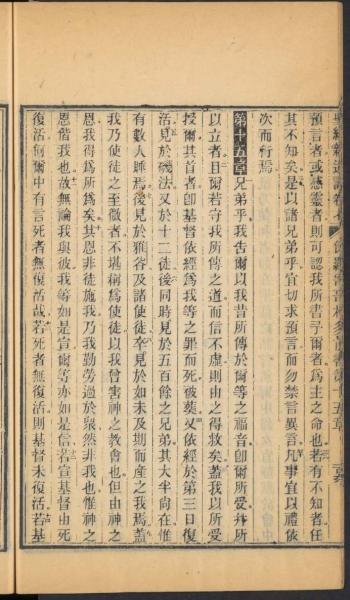 預言者或感靈者則可認我所書予爾者為主之命也若有不知者任
其不知矣是以諸兄弟乎宜切求預言而勿禁言異言凡事宜以禮依
次而行焉
第十五章兄弟乎我告爾以我昔所傳於爾等之福音即爾所受幷所
以立者且爾若守我所傳之道而信不虛則由之得救矣蓋我以所受
授爾其首者即基督依經爲我等之罪而死被葬又依經於第三日復
活見於磯法又於十二徒後同時見於五百餘之兄弟其大半尚在惟
有數人睡焉後見於雅各及諸使徒卒見於如未及期而產之我焉蓋
我乃使徒之至微者不堪稱爲使徒以我曾害神之教會也但由神之
恩我得爲所爲矣其恩非徒施我乃我勤勞過於衆然非我也惟神之
恩偕我也故無論我與彼我等如是宣爾等亦如是信若宣基督由死
復活何爾中有言死者無復活哉若死者無復活則基督未復活若基